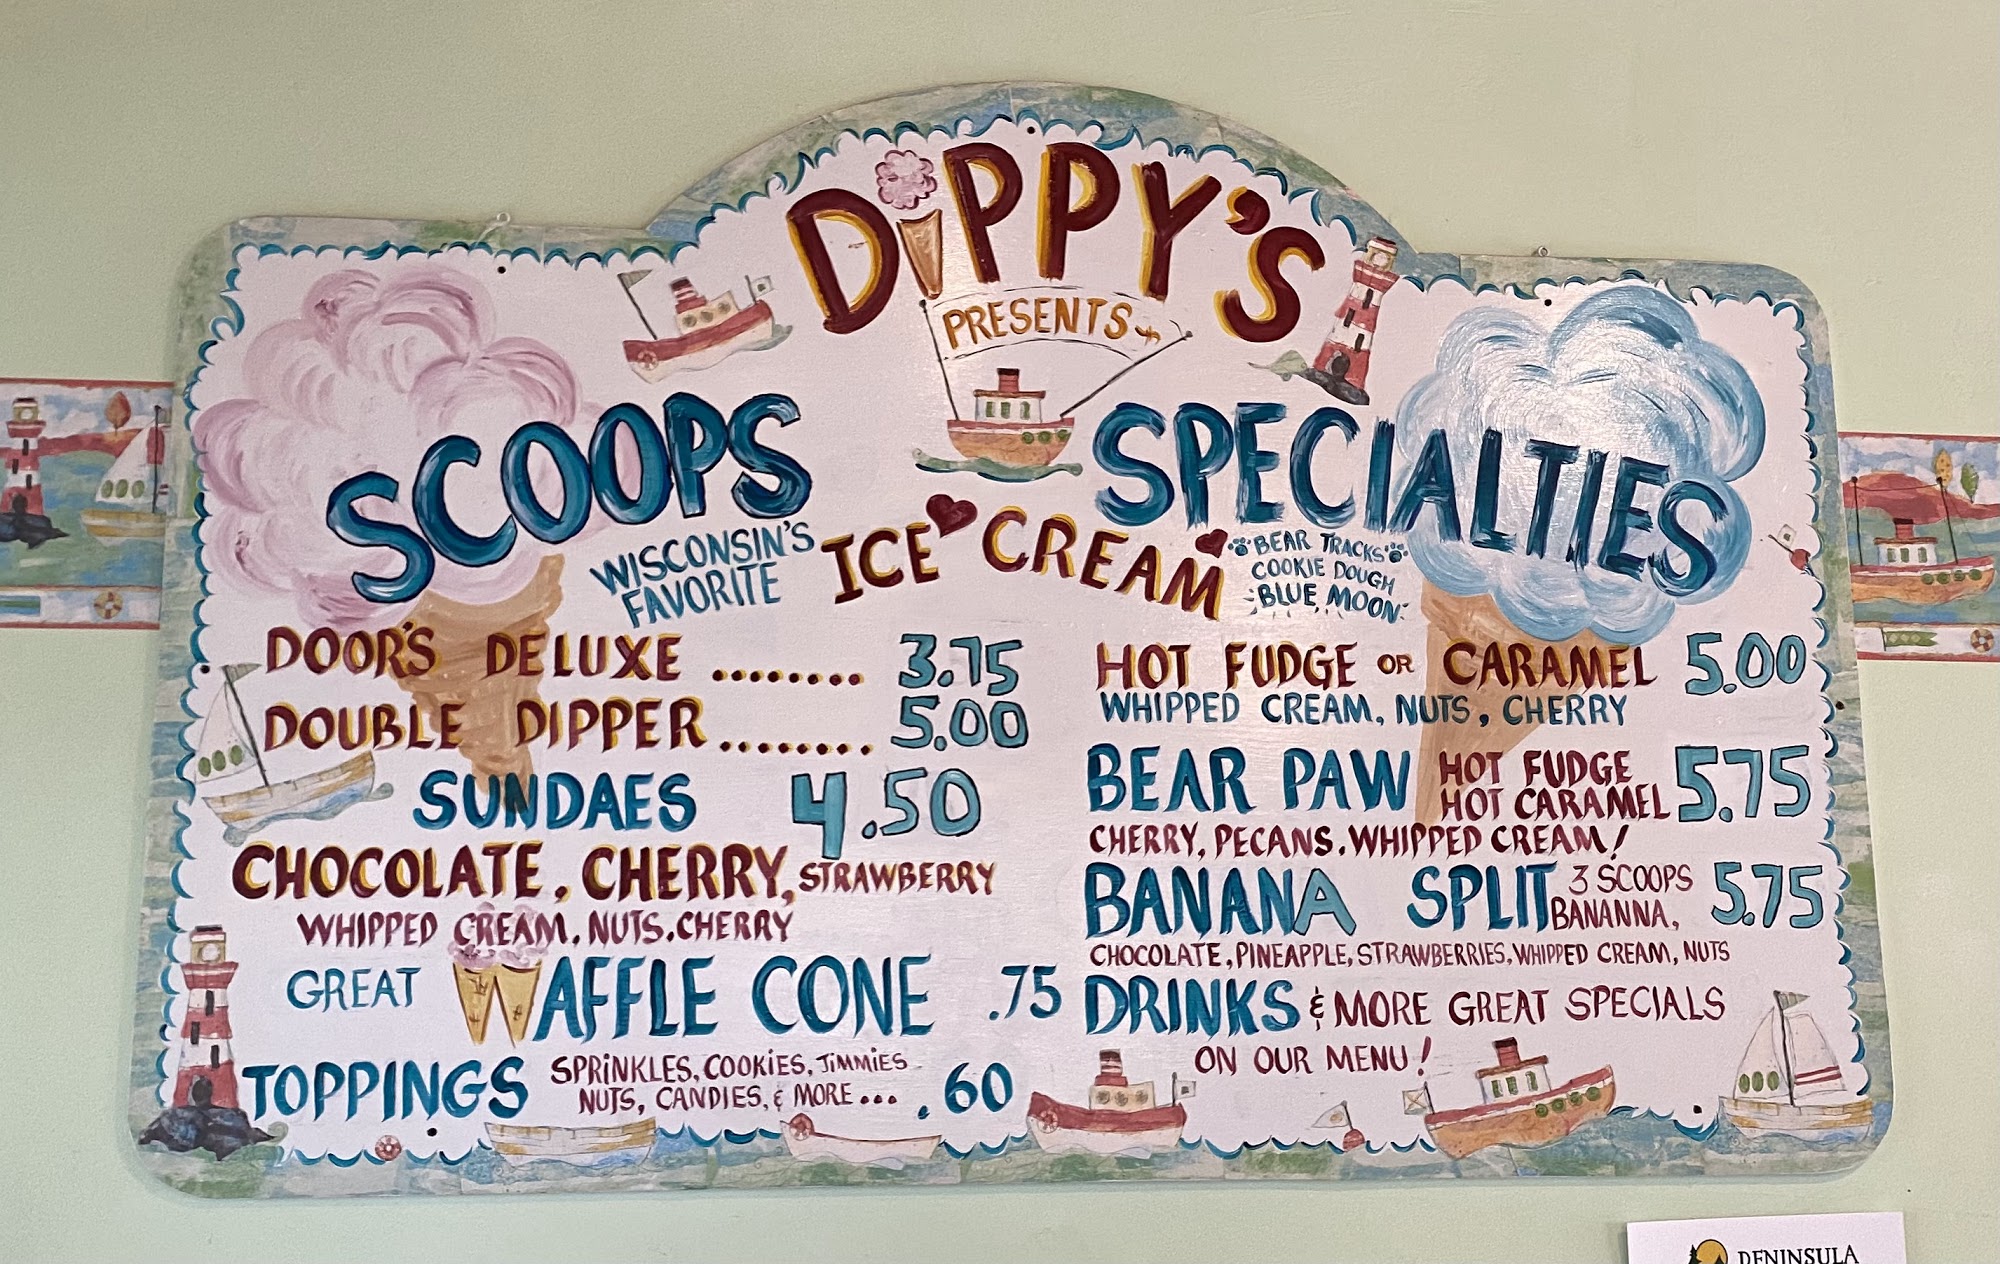 DIPPY'S
PRESENTS
SCOOPS
WISCONSIN'S
FAVORITE
ICE CREAM
DOOR'S DELUXE ........ 3.75
DOUBLE DIPPER ........ 5.00
SUNDAES 4.50
CHOCOLATE, CHERRY, STRAWBERRY
WHIPPED CREAM, NUTS, CHERRY
GREAT WAFFLE CONE .75
TOPPINGS SPRINKLES, COOKIES, JIMMIES
NUTS, CANDIES, & MORE... .60
SPECIALTIES
BEAR TRACKS
COOKIE DOUGH
BLUE MOON
HOT FUDGE OR CARAMEL 5.00
WHIPPED CREAM, NUTS, CHERRY
BEAR PAW HOT FUDGE
HOT CARAMEL 5.75
CHERRY, PECANS, WHIPPED CREAM!
BANANA SPLIT 3 SCOOPS
BANANNA, 5.75
CHOCOLATE, PINEAPPLE, STRAWBERRIES, WHIPPED CREAM, NUTS
DRINKS & MORE GREAT SPECIALS
ON OUR MENU!
PENINSULA